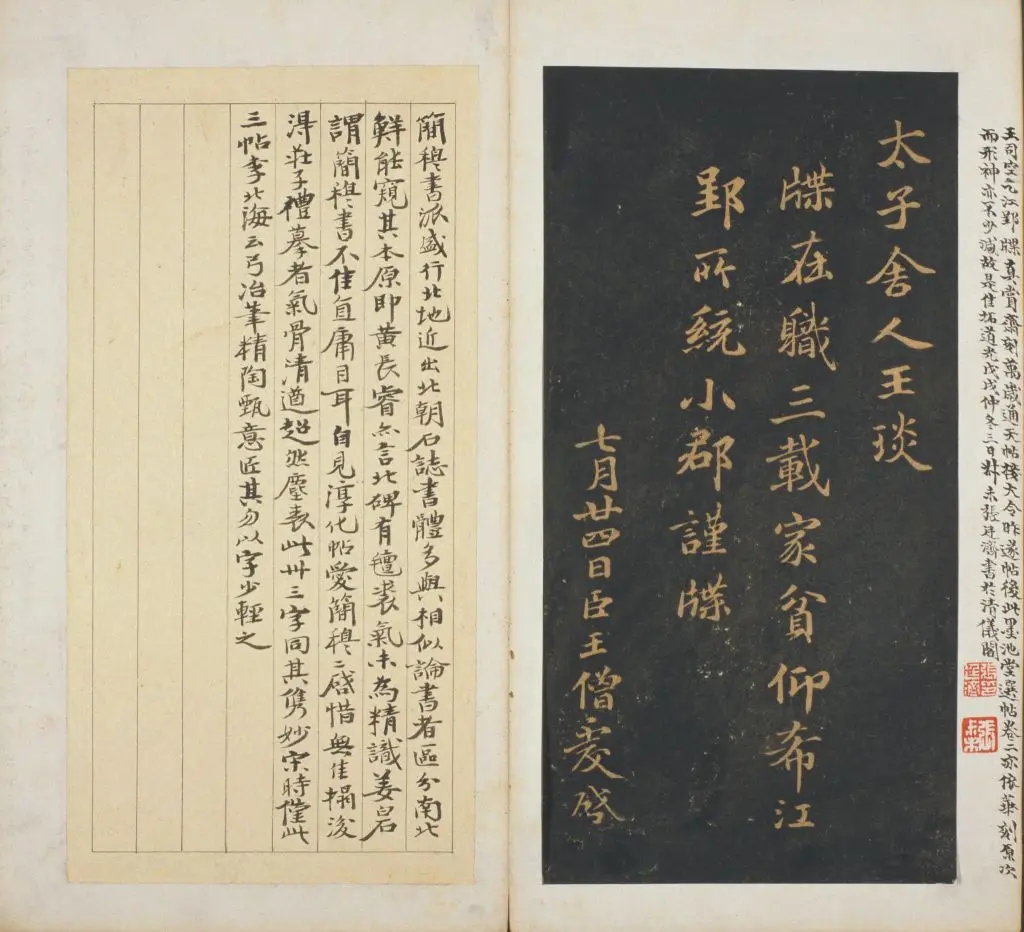 王司空江郢牒真賞齋刻萬歲通天帖後大令昨遂帖後此墨池堂選帖卷二亦依華刻原次
而形神亦不少減故是佳拓道光戊戌仲冬三日叔未張廷濟書於清儀閣
太子舍人王琰
牒在職三載家貧仰希江
郢所統小郡謹牒
七月廿四日臣王僧虔啓
簡穆書派盛行北地近出北朝石誌書體多與相似論書者區分南北
鮮能窺其本原即黃長睿亦言北碑有氊裘氣未為精識姜白石
謂簡穆書不佳直庸目耳自見淳化帖愛簡穆二啓惜無佳搨後
得莊子禮摹者氣骨清遒超然塵表此卅三字同其雋妙宋時僅此
三帖李北海云弓冶筆精陶甄意匠其勿以字少輕之